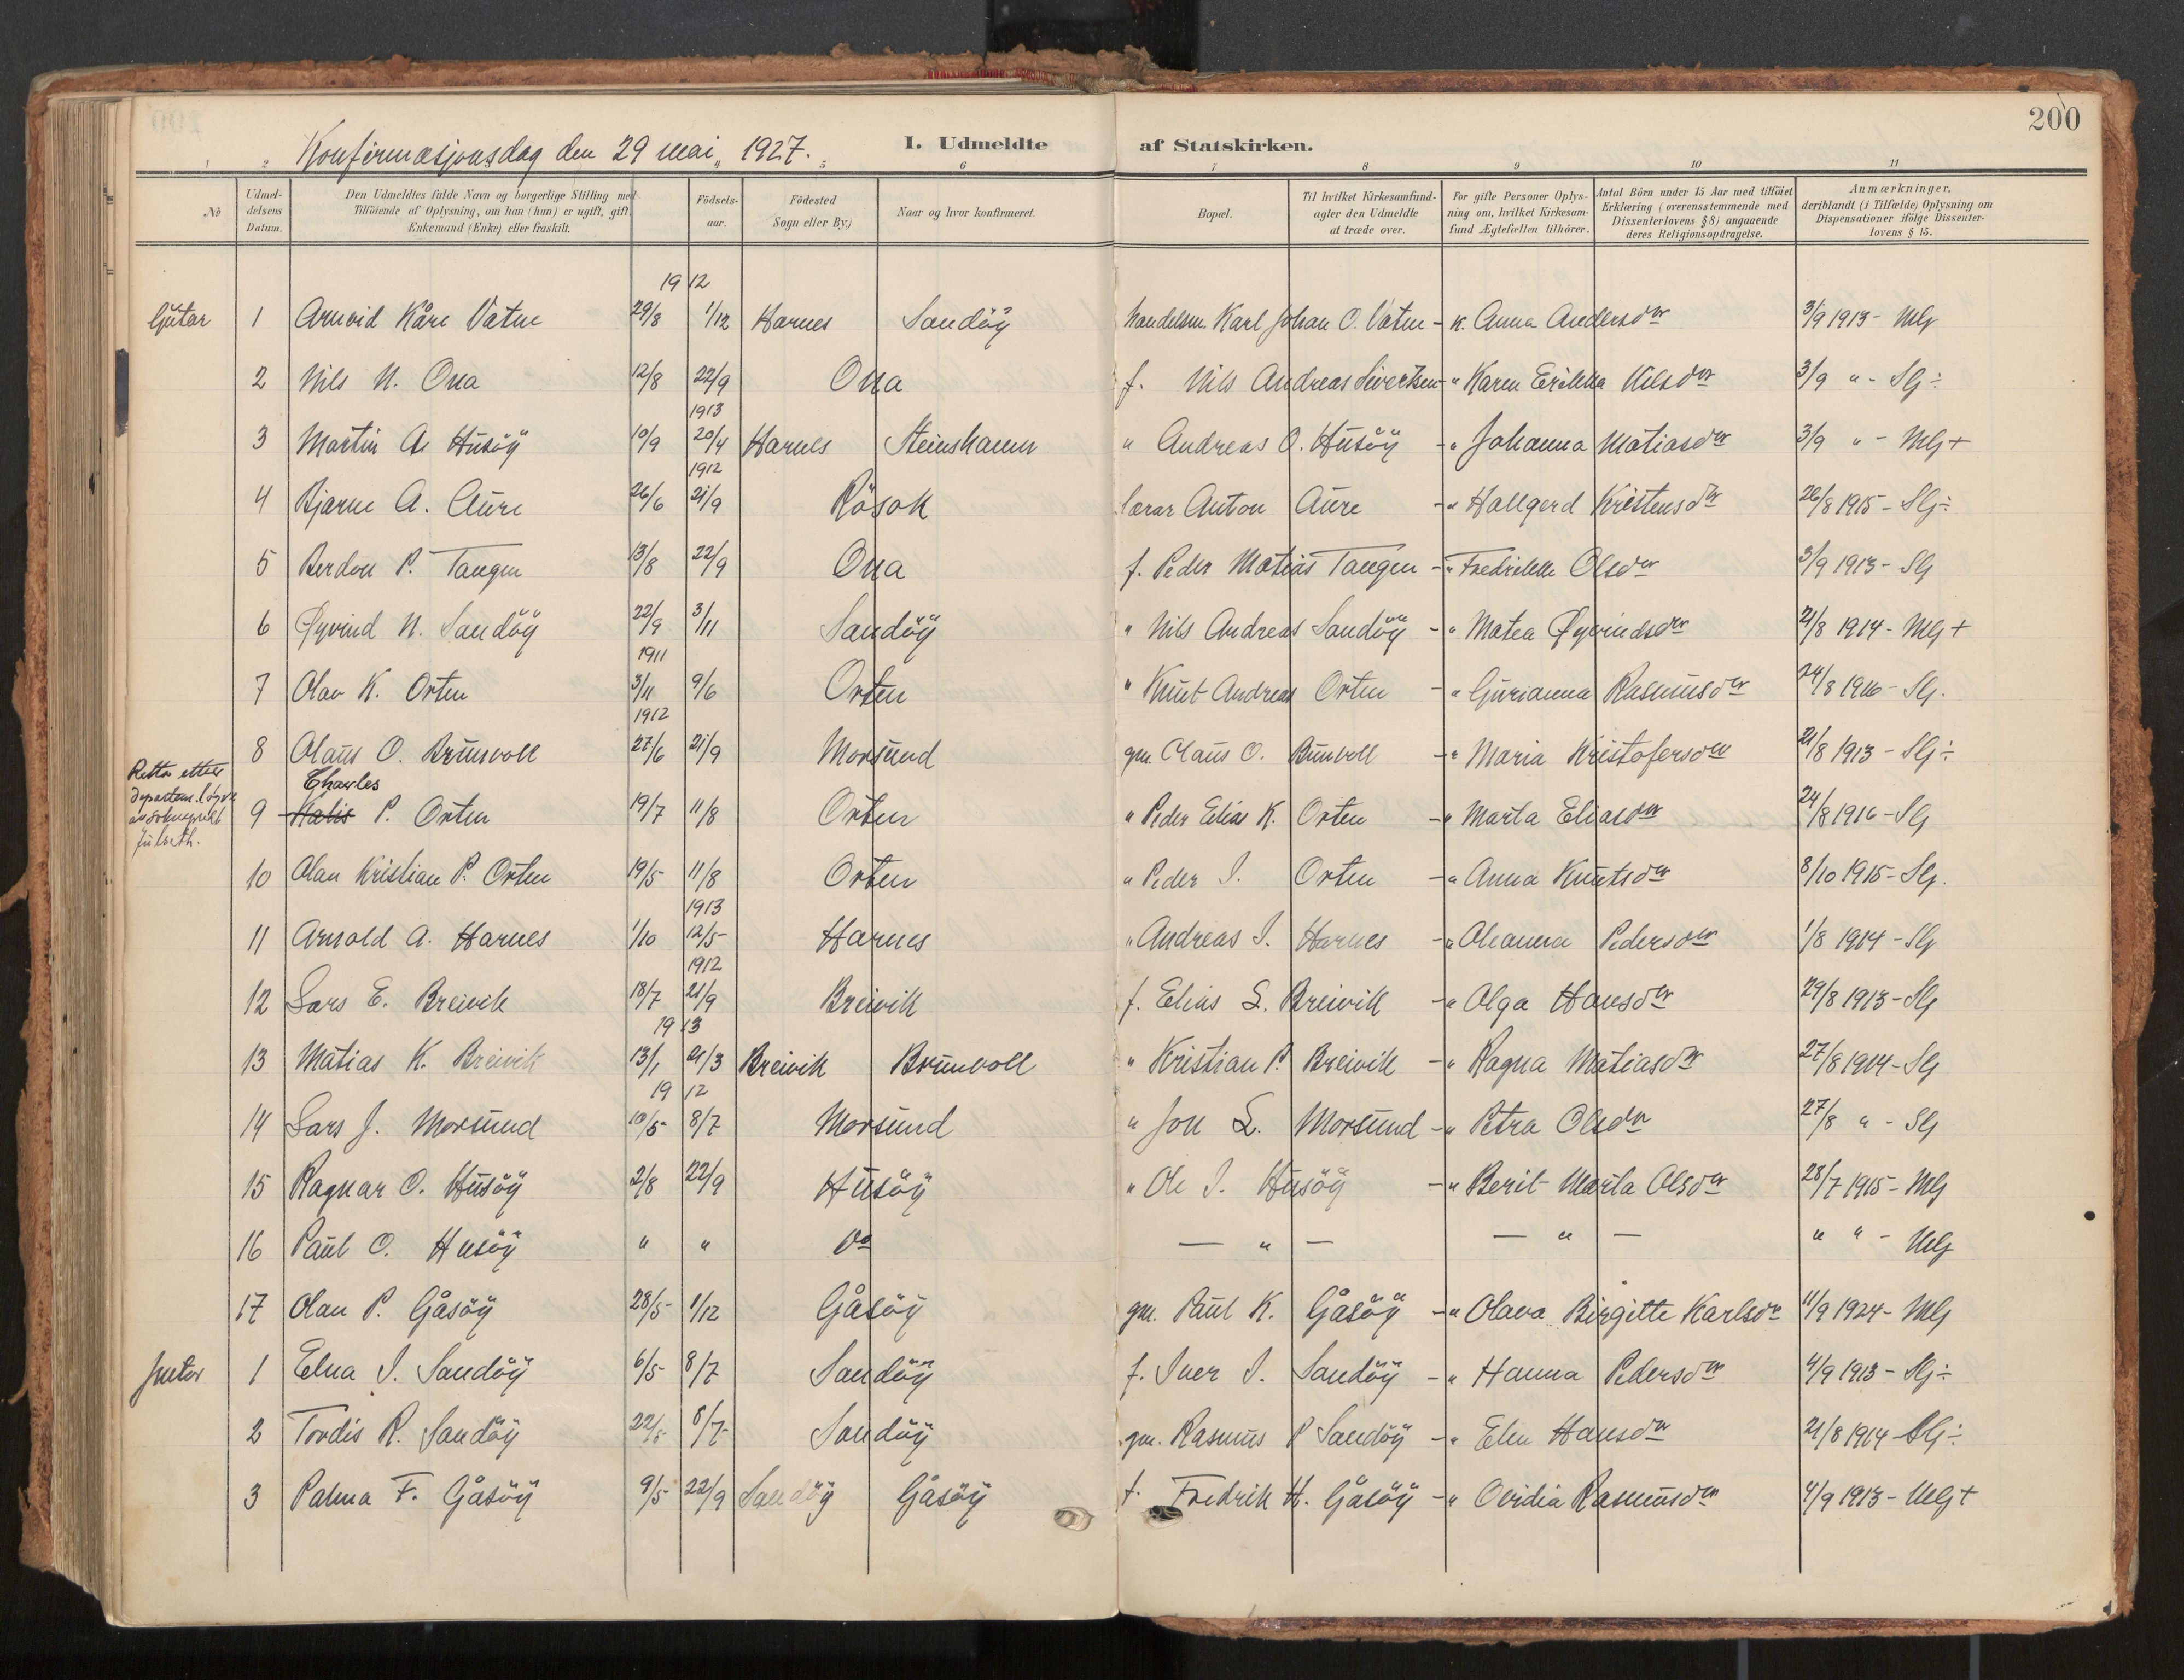 200
Konfirmasjonsdag den 29 mai 1927.
I. Udmeldte af Statskirken.
1 2 4 5 6 7 8 9 10 11
№ Udmel-delsens Datum. Den Udmeldtes fulde Navn og borgerlige Stilling med Tilföiende af Oplysning, om han (hun) er ugift, gift, Enkemand (Enke) eller fraskilt. Födsels-aar. Födested Sogn eller By.) Naar og hvor konfirmeret. Bopæl. Til hvilket Kirkesamfund agter den Udmeldte at træde over. For gifte Personer Oplys-ning om, hvilket Kirkesam-fund Ægtefællen tilhörer. Antal Börn under 15 Aar med tilföiet Erklæring (overensstemmende med Dissenterlovens § 8) angaaende deres Religionsopdragelse. Anmærkninger, deriblandt (i Tilfælde) Oplysning om Dispensationer ifölge Dissenter-lovens § 15.
1912
Gutar 1 Arnvid Kåre Vatne 29/8 1/12 Harnes Sandöÿ handelsm Karl Johan O. Vatne - k. Anna Andersdr 3/9 1913 - Mg
2 Nils N. Ona 12/8 22/9 Ona f. Nils Andreas Sivertsen - " Karen Erikka Nilsdr 3/9 " - Slj ÷
1913
3 Martin A. Husöÿ 10/9 20/4 Harnes Steinshamn " Andreas O. Husöÿ - " Johanna Matiasdr 3/9 " - Mg +
1912
4 Bjarne A. Aure 26/6 21/9 Rösok lærar Anton Aure - " Hallgerd Kristensdr 26/8 1915 - Slj ÷
5 Berdon P. Tangen 13/8 22/9 Ona f. Peder Matias Tangen - " Fredrikke Olsdr 3/9 1913 - Slj
6 Øyvind N. Sandöÿ 22/9 3/11 Sandöÿ " Nils Andreas Sandöÿ - " Matea Øyvindsdr 21/8 1914 - Mg +
1911
7 Olav K. Orten 3/11 9/6 Orten " Knut Andreas Orten - " Gurianna Rasmusdr 24/8 1916 - Slj.
1912
8 Olaus O. Brunvoll 27/6 21/9 Morsund gm. Olaus O. Brunvoll - " Maria Kristofersdr 21/8 1913 - Slj ÷
Retta etter departem. løyve
Charles
9 Halis P. Orten 19/7 11/8 Orten " Peder Elias K. Orten - " Marta Eliasdr 24/8 1916 - Slj
10 Olav Kristian P. Orten 19/5 11/8 Orten " Peder I. Orten - " Anna Knutsdr 8/10 1915 - Slj.
1913
11 Arnold A. Harnes 1/10 12/5 Harnes " Andreas I. Harnes - " Oleanna Pedersdr 1/8 1914 - Slj
1912
12 Lars E. Breivik 18/7 21/9 Breivik f. Elias L. Breivik - " Olga Hansdr 29/8 1913 - Slj
1913
13 Matias K. Breivik 13/1 21/3 Breivik Brunvoll " Kristian P. Breivik - " Ragna Matiasdr 27/8 1914 - Slj
1912
14 Lars J. Morsund 10/5 8/7 Morsund " Jon L. Morsund - " Petra Olsdr 27/8 " - Slj
15 Ragnar O. Husöÿ 2/8 22/9 Husöÿ " Ole I. Husöÿ - " Berit Marta Olsdr 28/7 1915 - Mg
16 Paul O. Husöÿ " " do — " — — " — " " - Mg
17 Olav P. Gåsöÿ 28/5 1/12 Gåsöÿ gm. Paul K. Gåsöÿ - " Olava Birgitte Karlsdr 11/9 1924 - Mg
Jentor 1 Elna I. Sandöÿ 6/5 8/7 Sandöÿ f. Iver I. Sandöÿ - " Hanna Pedersdr 4/9 1913 - Slj ÷
2 Tordis R. Sandöÿ 22/5 8/7 Sandöÿ gm. Rasmus P Sandöÿ - " Elen Hansdr 21/8 1914 - Slj ÷
3 Palma F. Gåsöÿ 9/5 22/9 Sandöÿ Gåsöÿ f. Fredrik H. Gåsöÿ - " Ovidia Rasmusdr 4/9 1913 - Mg +